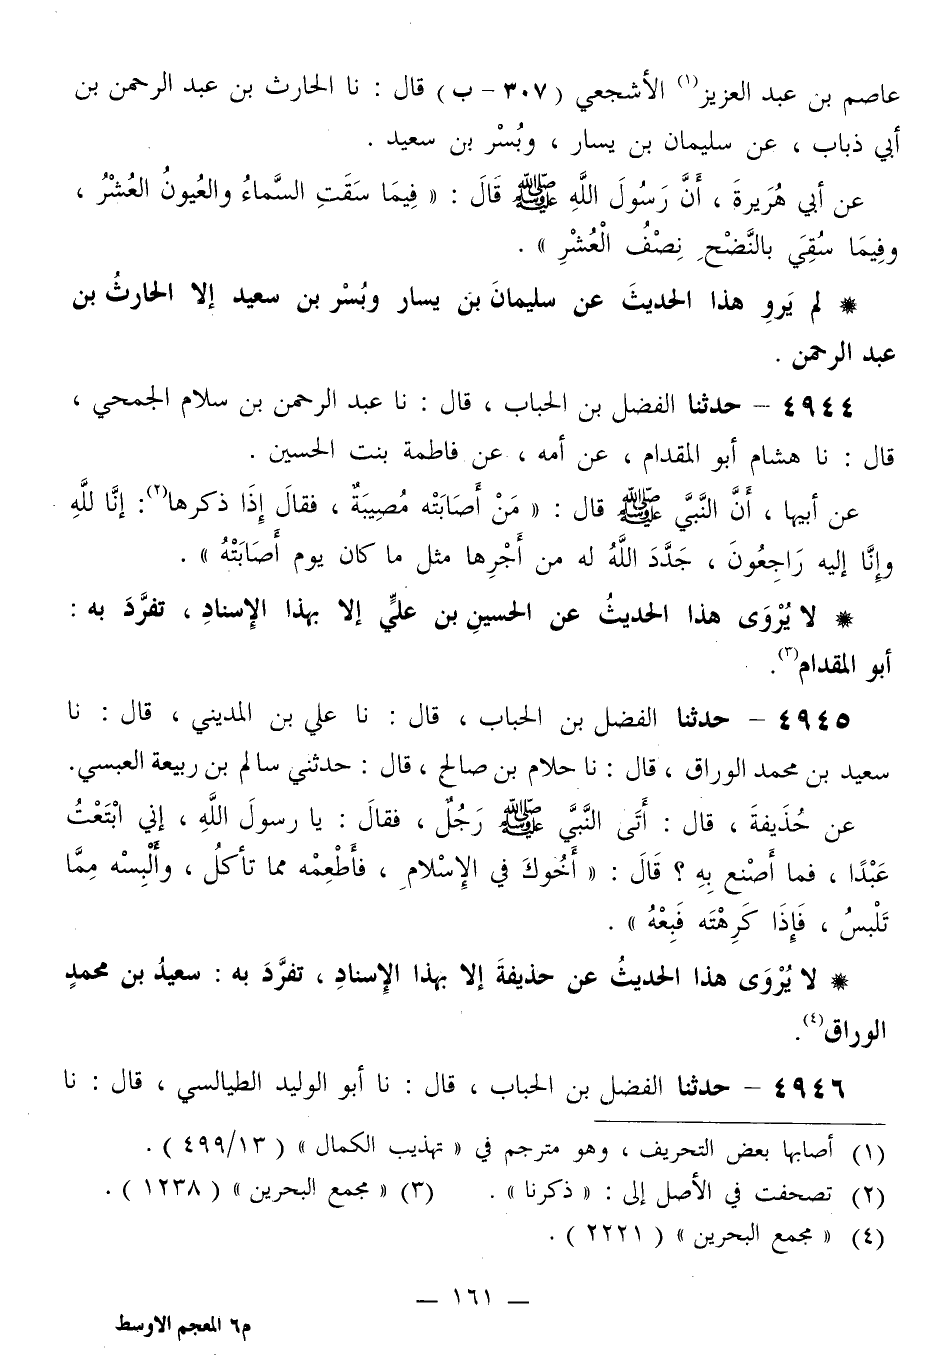 عاصم بن عبد العزيز(١) الأشجعي ( ٣٠٧ – ب ) قال : نا الحارث بن عبد الرحمن بن
أبي ذباب ، عن سليمان بن يسار ، وبُسْر بن سعيد .
عن أبي هُرَيرةَ ، أَنَّ رَسُولَ اللَّهِ ﷺ قَالَ : « فِيمَا سَقَتِ السَّماءُ والعُيونُ العُشْرُ ،
وفِيمَا سُقِيَ بالنَّضْحِ نِصْفُ الْعُشْرِ » .
* لم يَروِ هذا الحديثَ عن سليمانَ بن يسار وبُسْر بن سعيد إلا الحارثُ بن
عبد الرحمن .
٤٩٤٤ – حدثنا الفضل بن الحباب ، قال : نا عبد الرحمن بن سلام الجمحي ،
قال : نا هشام أبو المقدام ، عن أمه ، عن فاطمة بنت الحسين .
عن أبيها ، أَنَّ النَّبَّي ﷺ قال : « مَنْ أَصَابَتْه مُصِيبَةٌ ، فقالَ إِذَا ذكرها(٢): إنَّا للَّهِ
وإِنَّا إليه رَاجِعُونَ ، جَدَّدَ اللَّهُ له من أَجْرِها مثل ما كان يوم أَصَابَتْهُ » .
* لا يُرْوَى هذا الحديثُ عن الحسينِ بن عليٍّ إلا بهذا الإِسنادِ ، تفرَّدَ به :
أبو المقدام(٣).
٤٩٤٥ – حدثنا الفضل بن الحباب ، قال : نا علي بن المديني ، قال : نا
سعيد بن محمد الوراق ، قال : نا حلام بن صالح ، قال : حدثني سالم بن ربيعة العبسي.
عن حُذَيفةَ ، قال : أَتَى النَّبَّي ﷺ رَجُلٌ ، فقالَ : يا رسولَ اللَّهِ ، إني ابْتَعْتُ
عَبْدًا ، فما أَصْنع بِهِ ؟ قَالَ : « أَخُوكَ في الإِسْلامِ ، فَأَطْعِمْه مما تأكلُ ، وأَلْبِسْه مِمَّا
تَلْبسُ ، فَإِذَا كَرِهْتَه فَبِعْهُ » .
* لا يُرْوَى هذا الحديثُ عن حذيفةَ إلا بهذا الإِسنادِ ، تفرَّدَ به : سعيدُ بن محمدٍ
الوراق(٤).
٤٩٤٦ – حدثنا الفضل بن الحباب ، قال : نا أبو الوليد الطيالسي ، قال : نا
(١) أصابها بعض التحريف ، وهو مترجم في « تهذيب الكمال » ( ٤٩٩/١٣ ) .
(٢) تصحفت في الأصل إلى : « ذكرنا » . (٣) « مجمع البحرين » ( ١٢٣٨ ) .
(٤) « مجمع البحرين » ( ٢٢٢١ ) .
— ١٦١ —
م٦ المعجم الاوسط